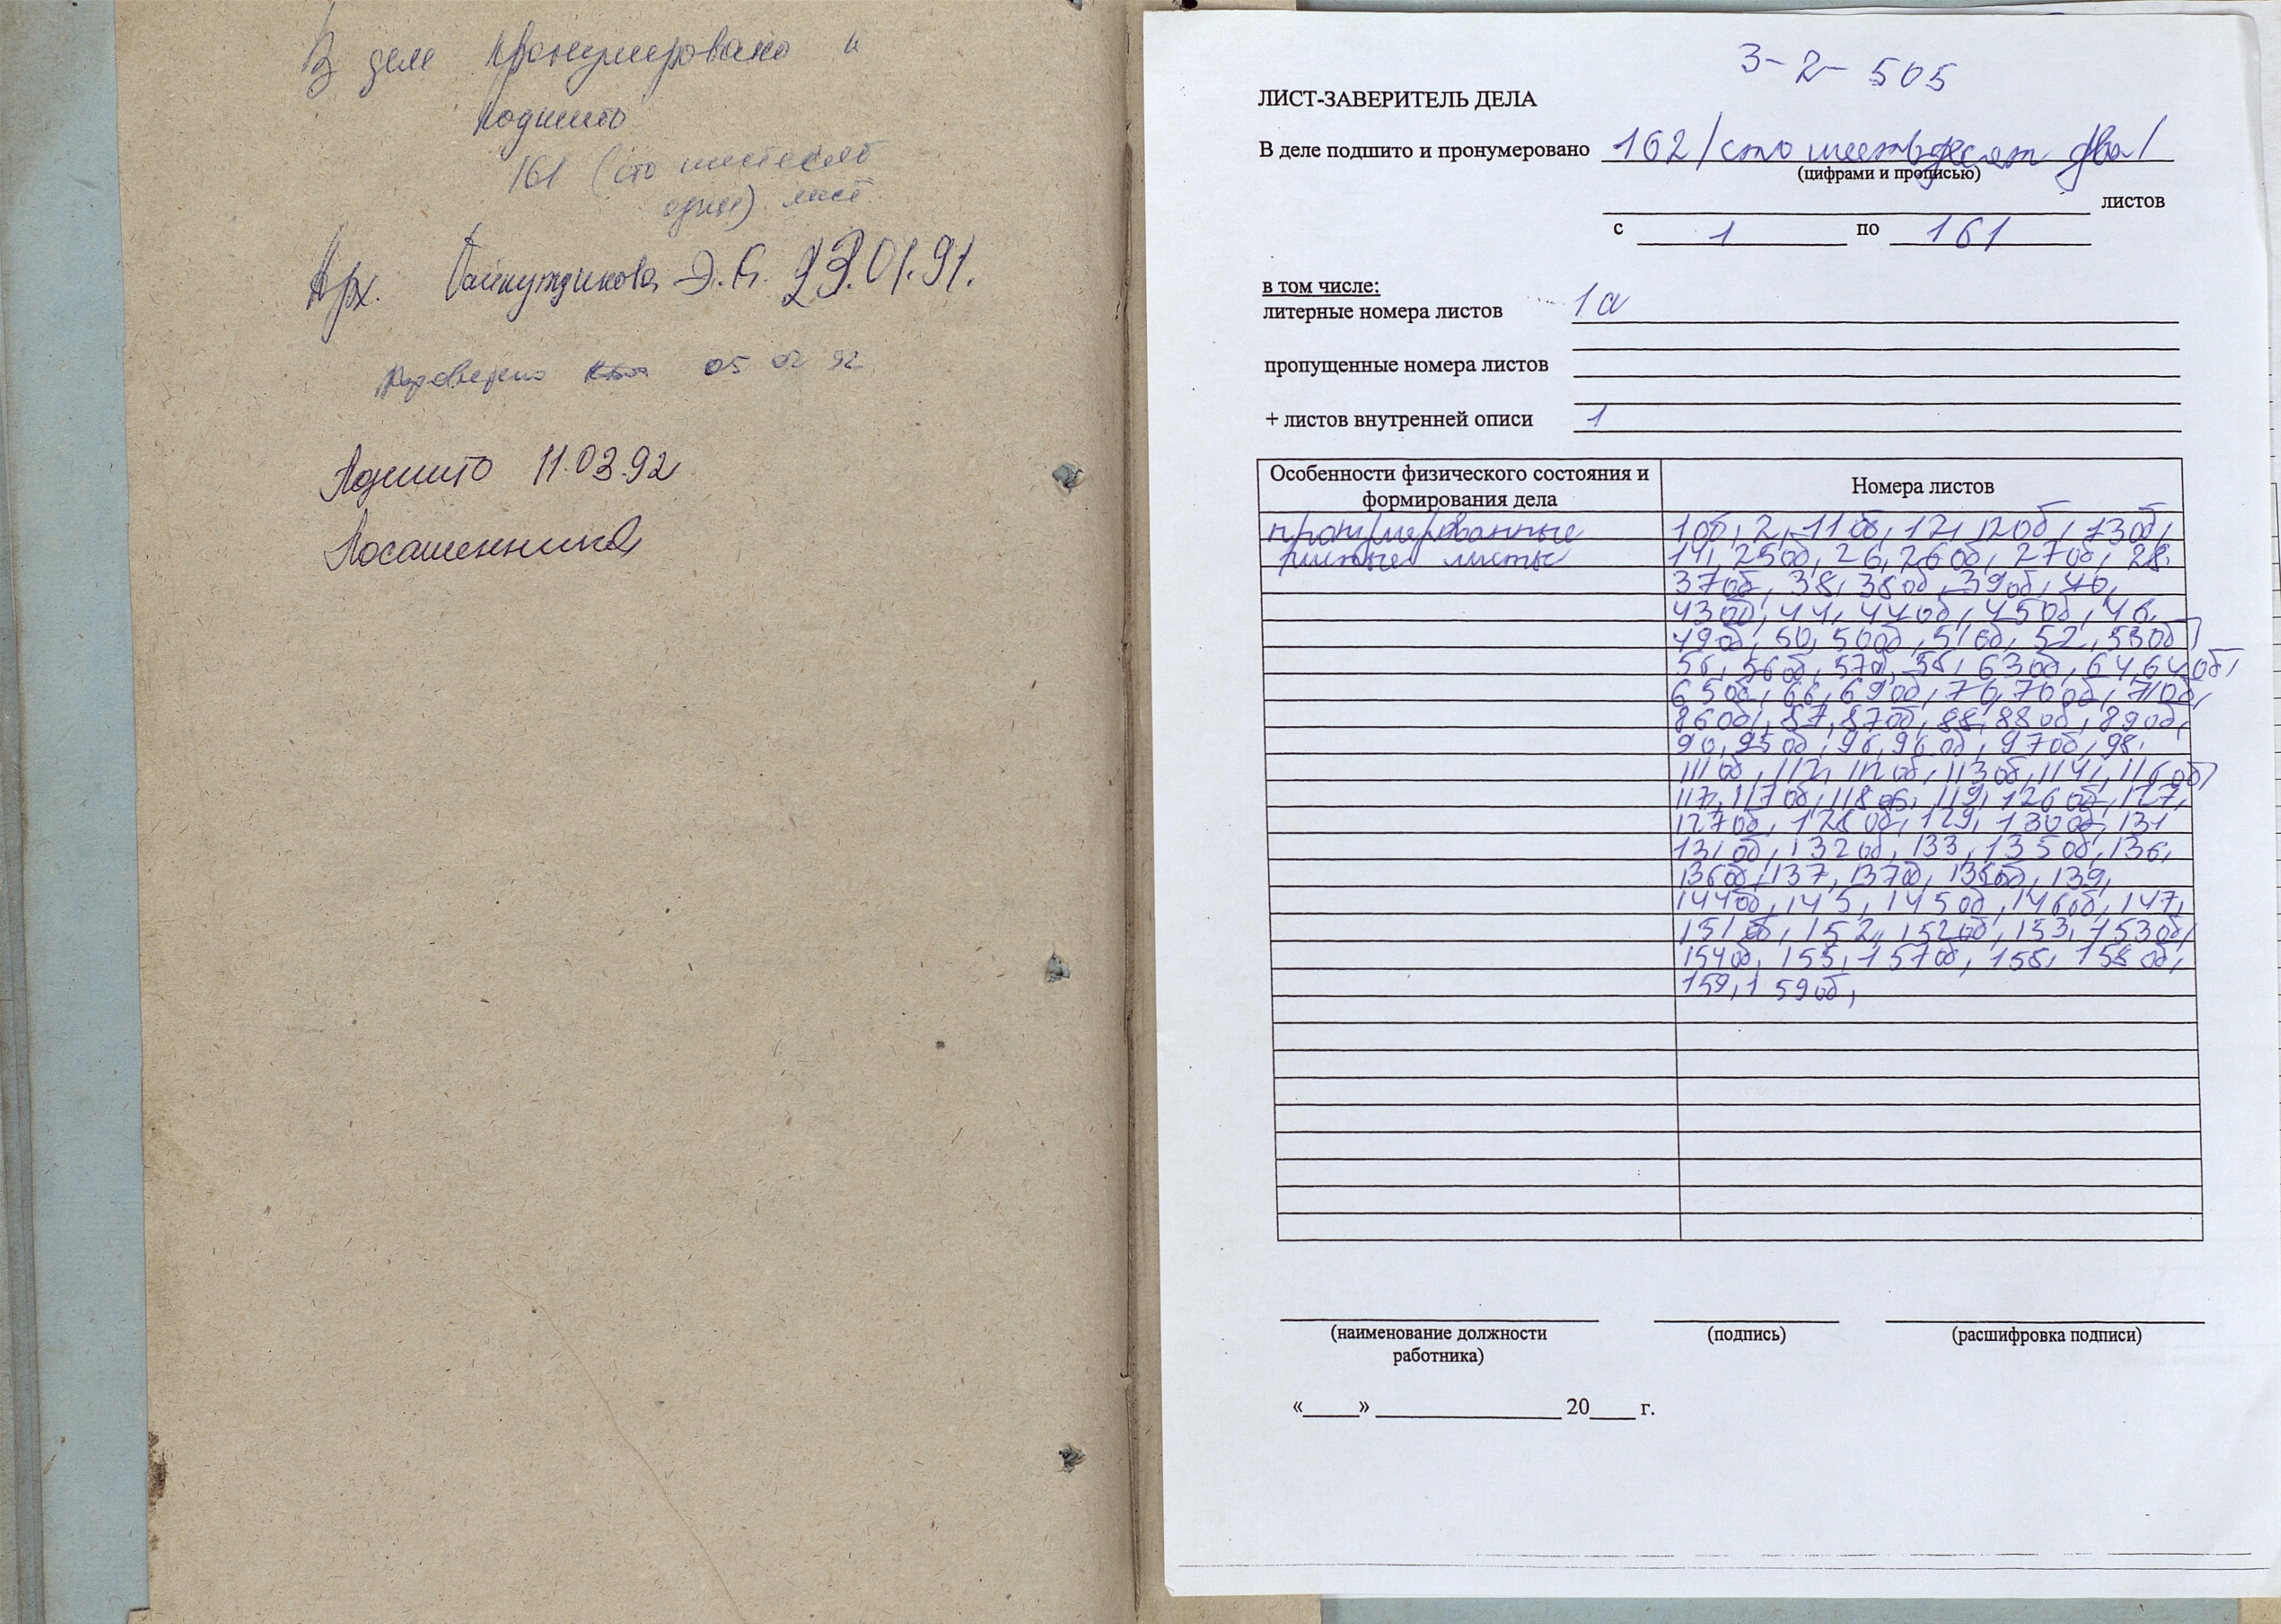 В деле пронумеровано и
подшито
161 (сто шестьдесят
один) лист.
Арх. Э.Я. 23.01.91.
Проверено 05 02 92
Подшито 11.03.92
3-2-505
ЛИСТ-ЗАВЕРИТЕЛЬ ДЕЛА
В деле подшито и пронумеровано 162 /сто шестьдесят два/
(цифрами и прописью)
листов
с 1 по 161
в том числе:
литерные номера листов 1а
пропущенные номера листов
+ листов внутренней описи 1
Особенности физического состояния и формирования дела
Номера листов
пронумерованные 1об, 2, 11об, 12, 12об, 13об,
чистые листы 14, 25об, 26, 26об, 27об, 28,
37об, 38, 38об, 39об, 40,
43об, 44, 44об, 45об, 46,
49об, 50, 50об, 51об, 52, 53об,
56, 56об, 57об, 58, 63об, 64, 64об,
65об, 66, 69об, 70, 70об, 71об,
86об, 87, 87об, 88, 88об, 89об,
90, 95об, 96, 96об, 97об, 98,
111об, 112, 112об, 113об, 114, 116об,
117, 117об, 118об, 119, 126об, 127,
127об, 128об, 129, 130об, 131
131об, 132об, 133, 135об, 136,
136об, 137, 137об, 138об, 139,
144об, 145, 145об, 146об, 147,
151об, 152, 152об, 153, 153об,
154об, 155, 157об, 158, 158об,
159, 159об,
(наименование должности
работника)
(подпись)
(расшифровка подписи)
«____» ____________ 20____ г.